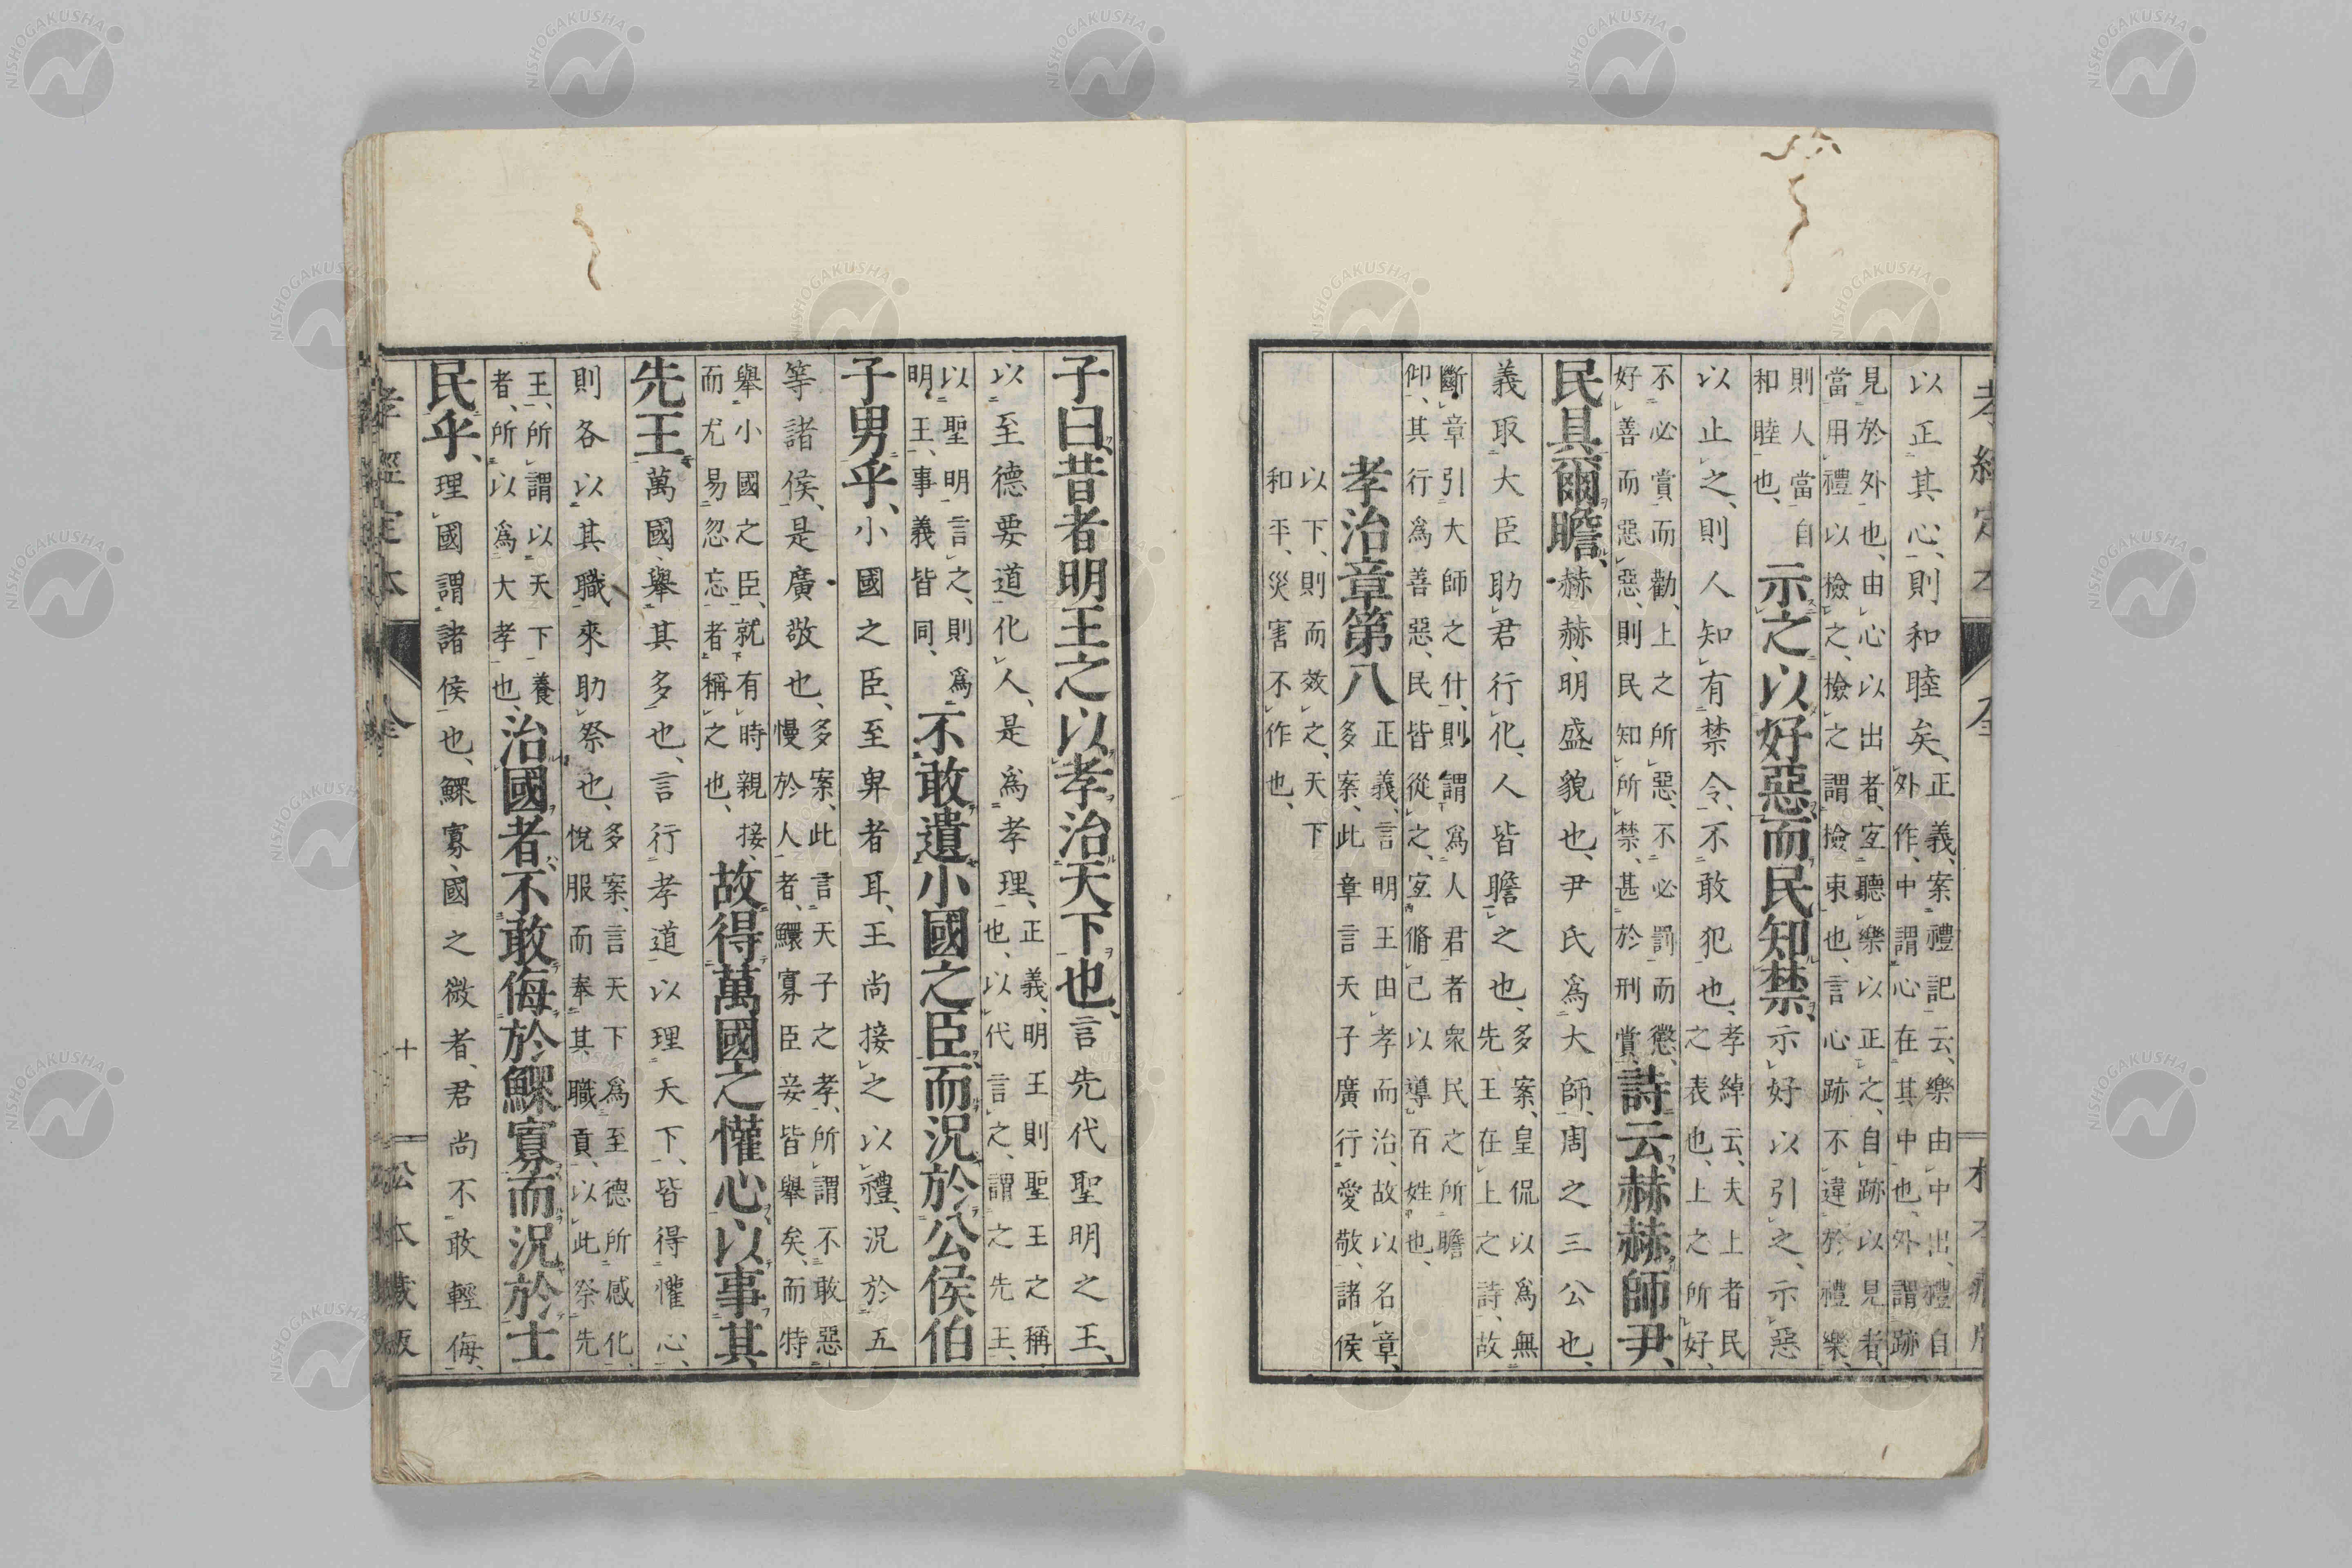 以正其心、則和睦矣、正義、案禮記云、樂由中出、禮自
外作、中謂心在其中也、外謂跡
見於外也、由心以出者、宜聽樂以正之、自跡以見者、
當用禮以檢之、檢之謂檢束也、言心跡不違於禮樂、
則人當自
和睦也、示之以好惡而民知禁、示好以引之、示惡
以止之、則人知有禁令、不敢犯也、孝綽云、夫上者民
之表也、上之所好、
不必賞而勸、上之所惡、不必罰而懲、
好善而惡惡、則民知所禁、甚於刑賞、詩云赫赫師尹、
民具爾瞻、赫赫、明盛貌也、尹氏爲大師、周之三公也、
義取大臣助君行化、人皆瞻之也、多案、皇侃以爲無
先王在上之詩、故
斷章引大師之什、則謂爲人君者衆民之所瞻
仰、其行爲善惡、民皆從之、宜脩己以導百姓也、
孝治章第八 正義、言明王由孝而治、故以名章、
多案、此章言天子廣行愛敬、諸侯
以下、則而效之、天下
和平、災害不作也、
子曰昔者明王之以孝治天下也、言先代聖明之王、
以至德要道化人、是爲孝理、正義、明王則聖王之稱
也、以代言之、謂之先王、
以聖明言之、則爲
明王、事義皆同、不敢遺小國之臣、而況於公侯伯
子男乎、小國之臣、至卑者耳、王尚接之以禮、況於五
等諸侯、是廣敬也、多案、此言天子之孝、所謂不敢惡
慢於人者、鰥寡臣妾皆舉矣、而特
舉小國之臣、就有時親接、
而尤易忽忘者稱之也、故得萬國之懽心以事其
先王、萬國舉其多也、言行孝道以理天下、皆得懽心、
則各以其職來助祭也、多案、言天下爲至德所感化、
悅服而奉其職貢、以此祭先
王、所謂以天下養
者、所以爲大孝也、治國者、不敢侮於鰥寡、而況於士
民乎、理國謂諸侯也、鰥寡、國之微者、君尚不敢輕侮、
孝經定本 全 十 松本藏板
NISHOGAKUSHA